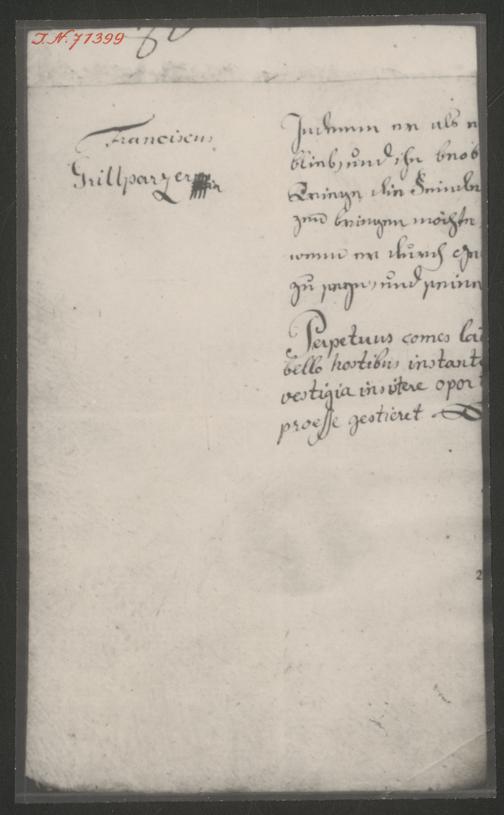 I.N. 71399
Franciscus
Grillparzer
Indemm er als
blieb, und ihn
bringen möchte,
wenn er durch
zu seyn, und seine
Perpetuus comes
bello hostibus instant
vestigia insistere opor
proesse gestieret
2